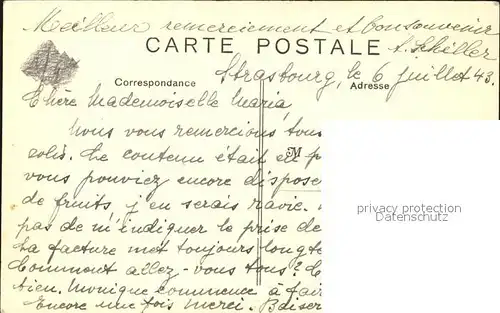 Meilleur remerciement et bon souvenir
A. Schiller
CARTE POSTALE
Strasbourg, le 6 juillet 43.
Correspondance
Adresse
Chère Mademoiselle Maria,
Nous vous remercions tous
colis. Le contenu était
M
vous pouviez encore dispose
de fruits, j'en serais ravie.
pas de m'indiquer le prise de
La facture met toujours longte
Comment allez-vous tous?
tien. Monique commence à fair
Encore une fois merci. Baiser
privacy protection
Datenschutz